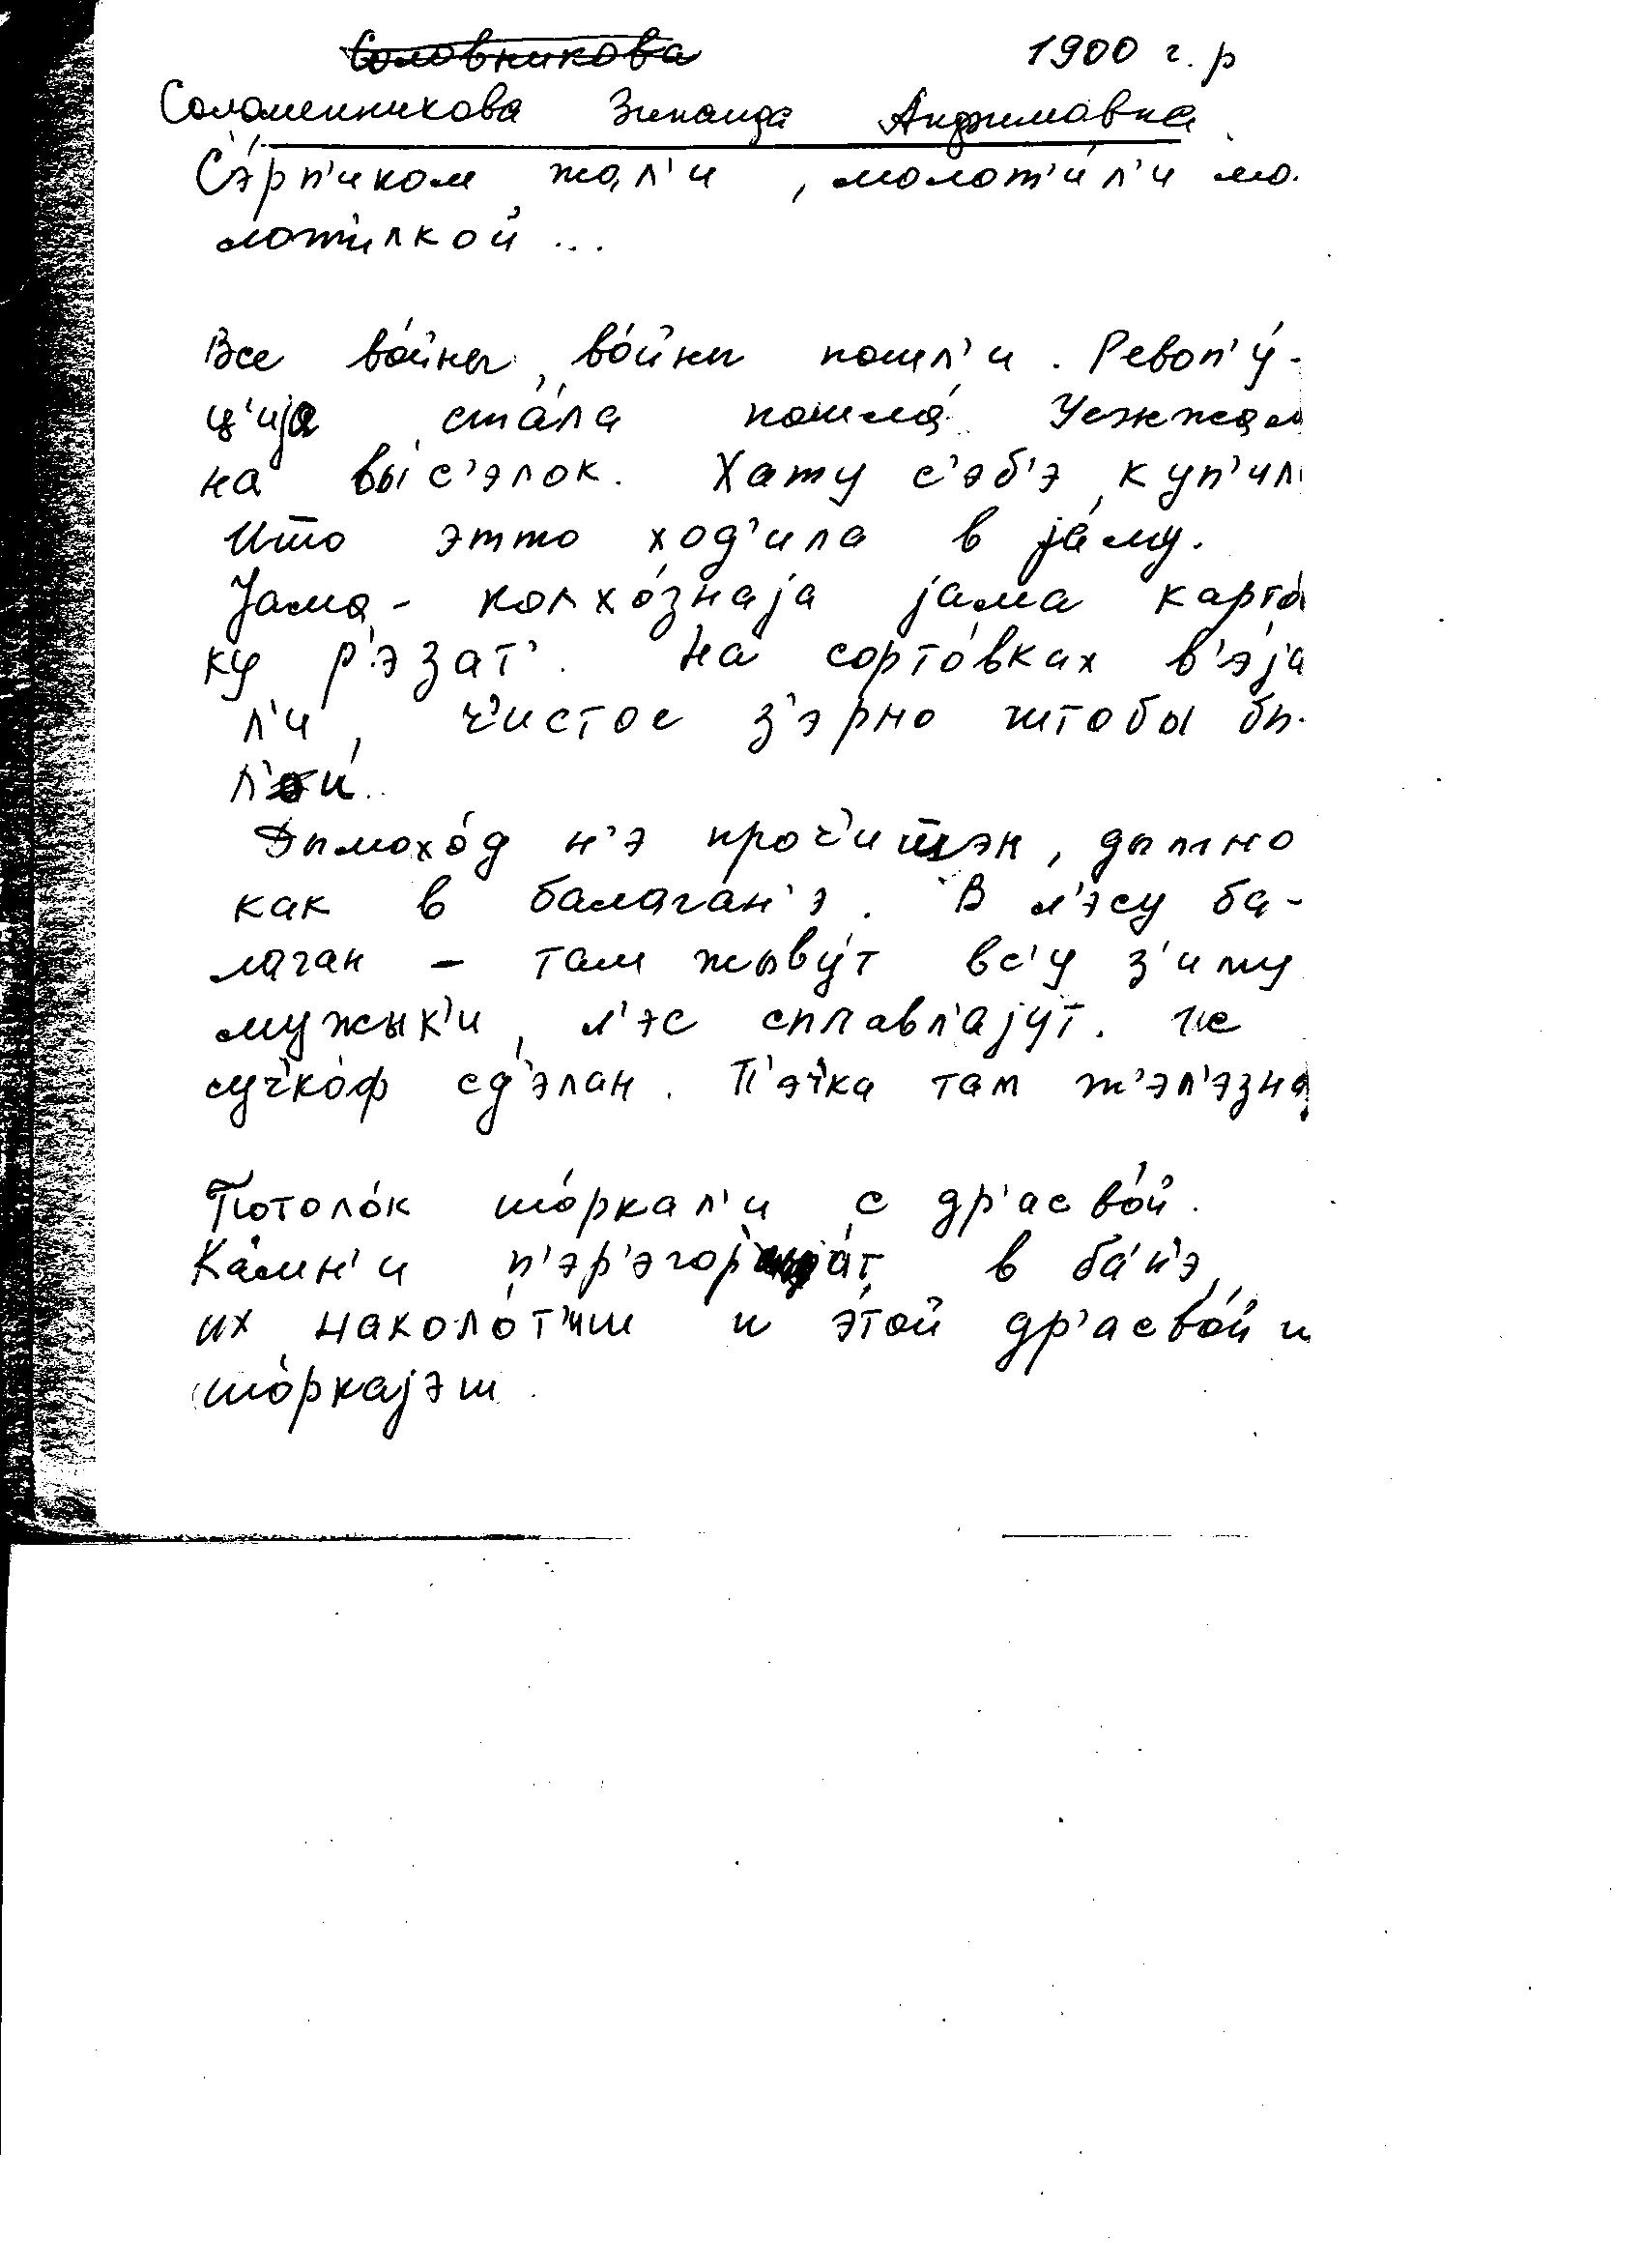 Соловникова 1900 г. р
Соломенникова Зинаида
С'э́рп'иком жал'и, молот'и́л'и мо-
лоти́лкой ...
Все во́йны, во́йны пошл'и. Револ'у́-
ц'иjа ста́ла пошла́. Уежжал
на вы́с'элок. Хату с'эб'э куп'ил
што этто ход'ила в jа́му.
Jама - колхо́знаjа jама карто́
ку р'э́зат'. На сорто́вках в'э́jа
л'и, ч'истое з'эрно штобы бы-
л'и..
Дымохо́д н'э проч'ишэн, дымно
как в балаган'э. В л'эсу ба-
лаган - там жыву́т вс'у з'иму
мужык'и, л'эс сплавл'аjут. Ис
суч'ко́ф сд'э́лан. П'эч'ка там ж'эл'эзна
Потоло́к шо́ркал'и с др'асво́й.
Ка́мн'и п'эр'эгор'а́т в ба́н'э,
их наколо́т'иш и э́той др'асво́й и
шо́ркаjэш.